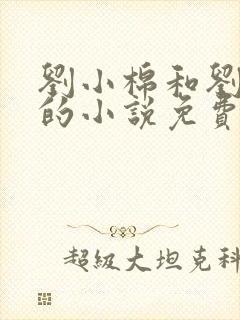 劉小棉和劉
的小說免費
超級大坦克科